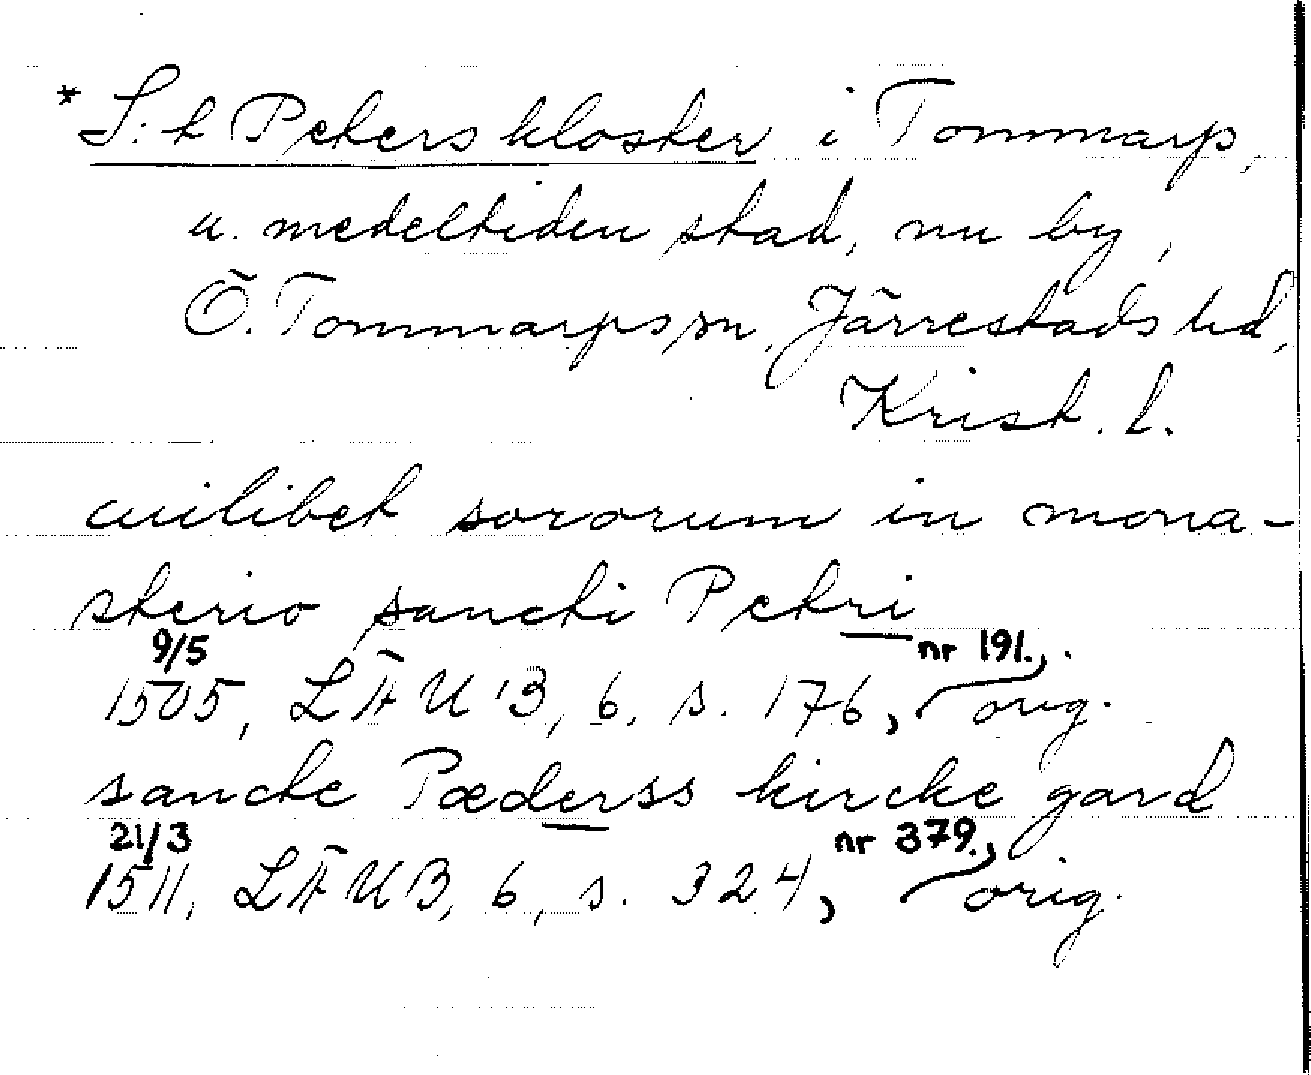 * S:t Peters kloster i Tommarp,
u. medeltiden stad, nu by,
Ö. Tommarps sn, Järrestads hd,
Krist. l.
cuilibet sororum in mona-
sterio sancti Petri
9/5 1505, LÄUB, 6, s. 176, nr 191., orig.
sancte Pæderss kircke gard
21/3 1511, LÄUB, 6, s. 324, nr 379., orig.